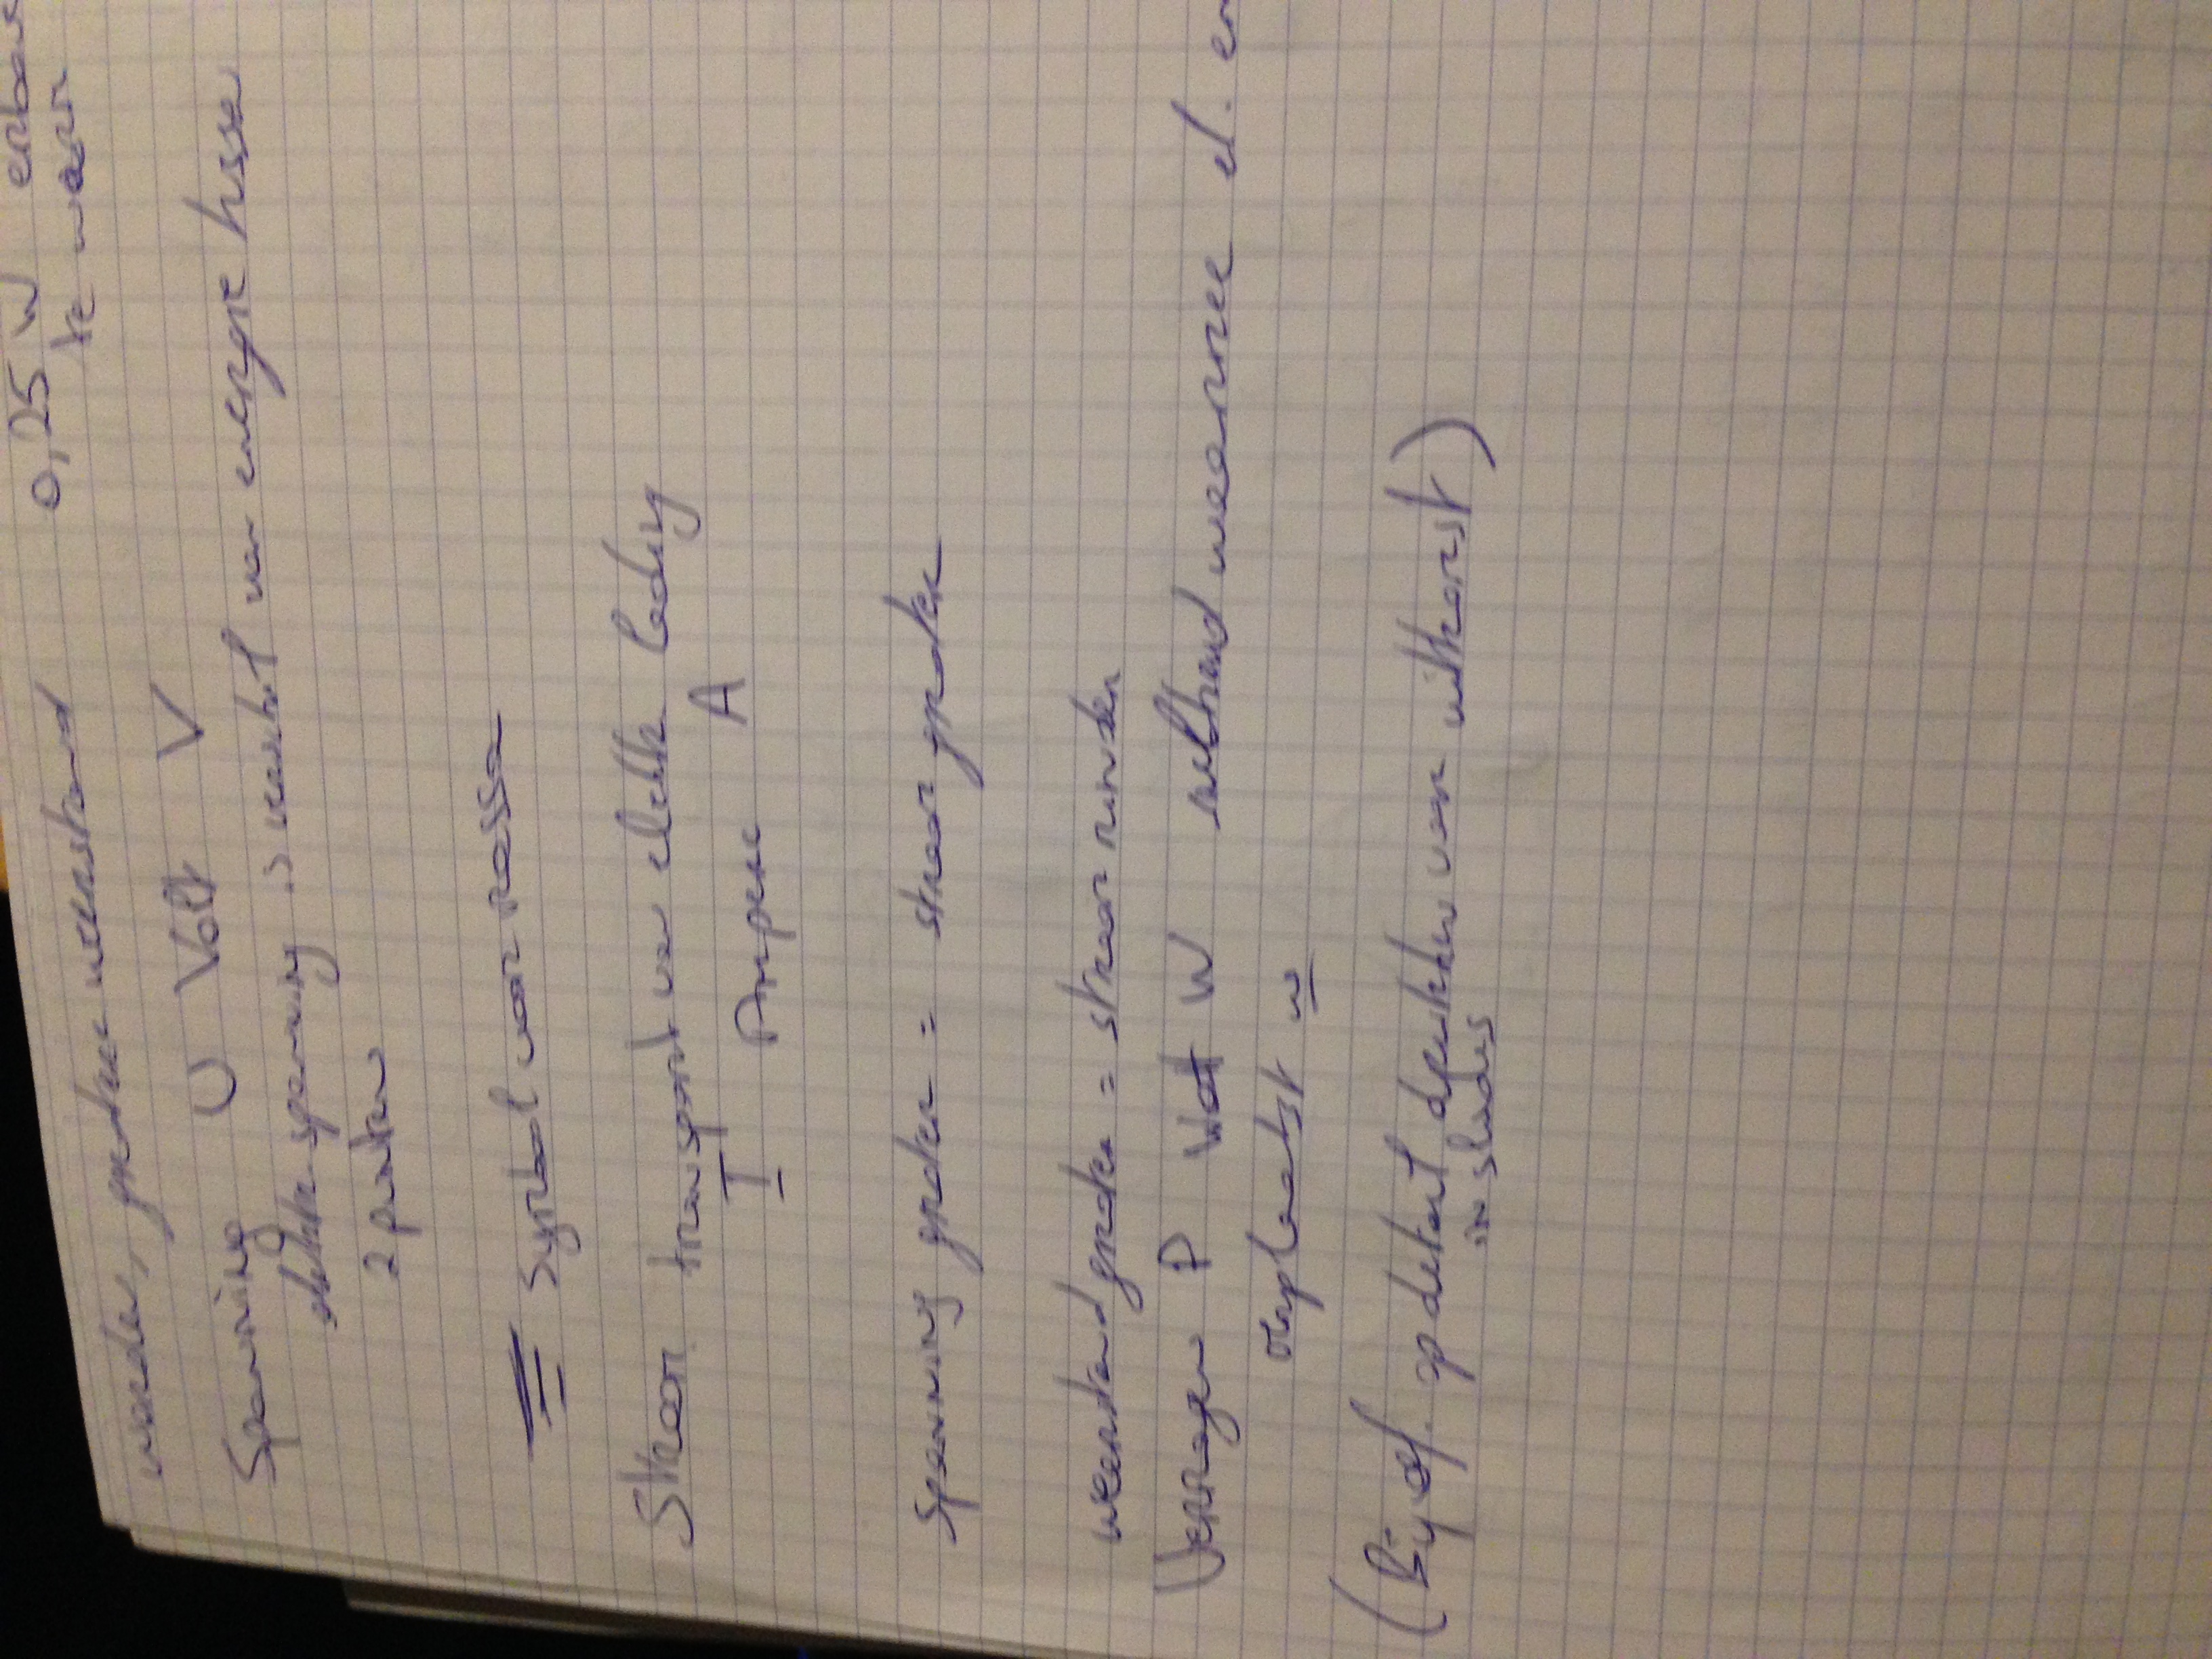 worden, grotere weerstand 0,25 W
te warm
Spanning U Volt V
elektr. spanning is verschil van energie tussen
2 punten
symbool voor massa
Stroom transport van elektr. lading
I Ampere A
spanning groter = stroom groter
weerstand groter = stroom minder
Vermogen P Watt W snelheid waarmee el. en
verplaatst w
(Bij oef. op detail, drukken voor uitkomst)
in slides